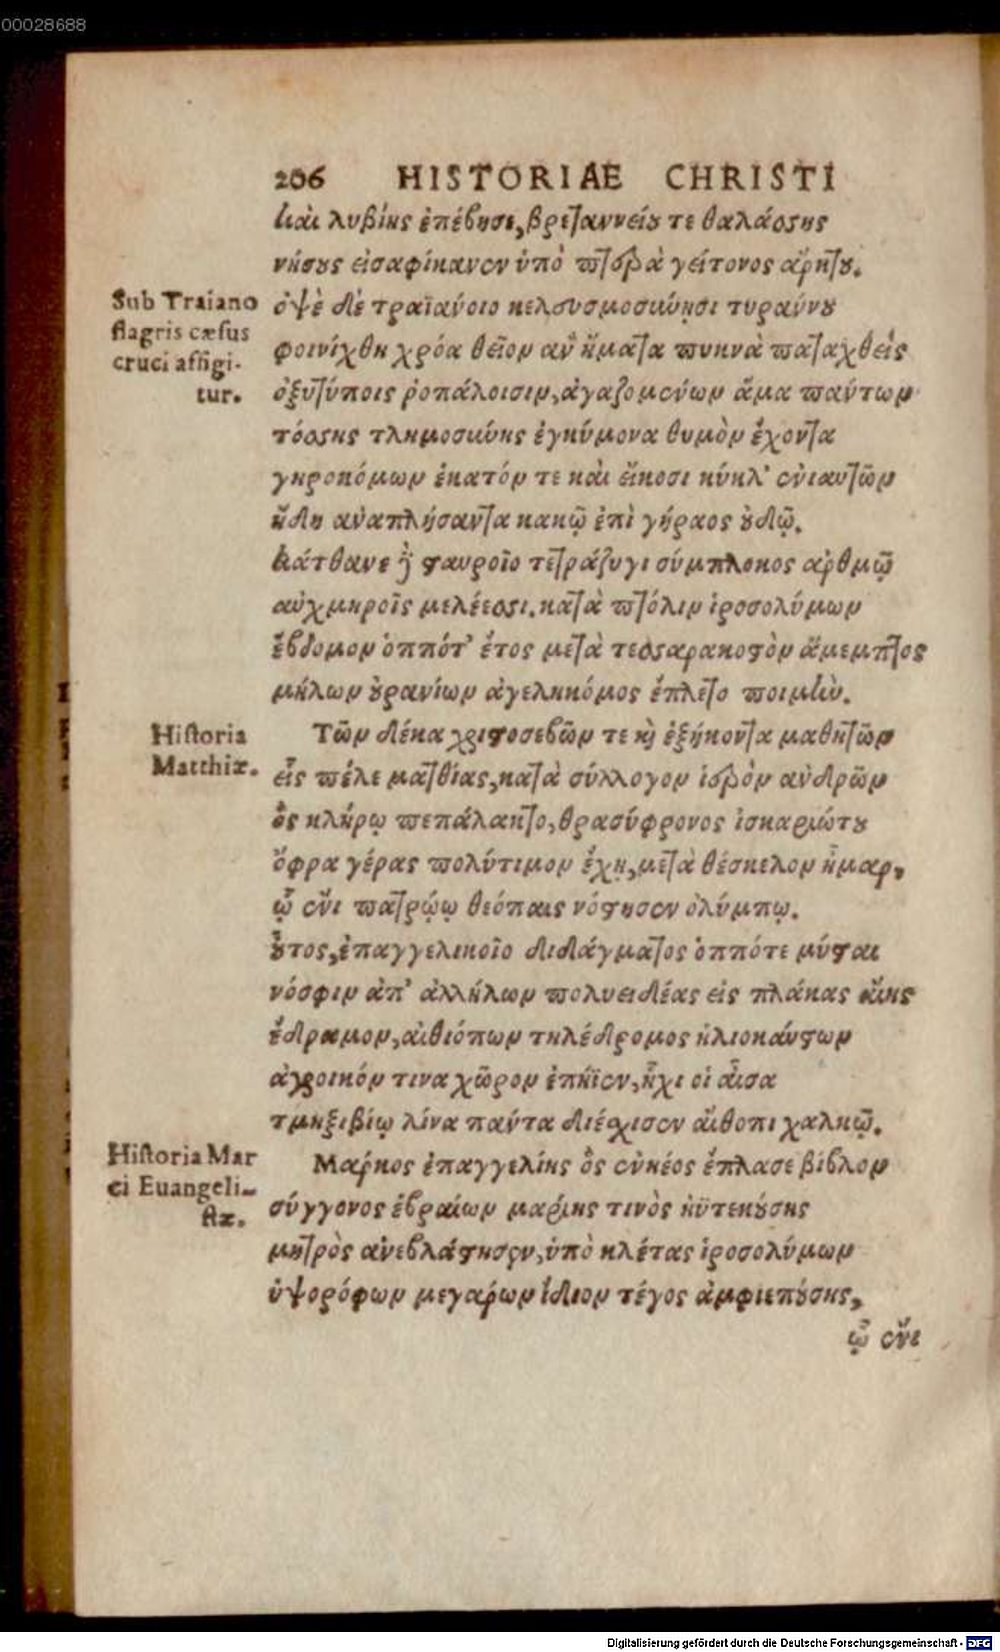 00028688
206 HISTORIAE CHRISTI
καὶ λυβίης ἐπέβησε, βρεταννείου τε θαλάσσης
νήσους εἰσαφίκανεν ὑπὸ πτερὰ γείτονος ἄρκτου.
Sub Traiano
flagris cæsus
cruci affigi-
tur.
ὀψὲ δὲ τραϊανοῖο κελευσμοσύνῃσι τυράννου
φοινίχθη χρόα θεῖον ἀν' ἤματα πυκνὰ παταχθεὶς
ὀξυτύποις ῥοπάλοισιν, ἀγαζομένων ἅμα πάντων
τόσσης τλημοσύνης ἐγκύμονα θυμὸν ἔχοντα
γηροκόμων ἑκατόν τε καὶ εἴκοσι κύκλ' ἐνιαυτῶν
ἤδη ἀναπλήσαντα κακῷ ἐπὶ γήραος οὐδῷ.
κάτθανε δὲ σταυροῖο τετράζυγι σύμπλοκος ἀρθμῷ
αὐχμηροῖς μελέεσσι. κατὰ πτόλιν ἱροσολύμων
ἕβδομον ὁππότ' ἔτος μετὰ τεσσαρακοστὸν ἄμεμπτος
μήλων οὐρανίων ἀγεληκόμος ἔπλετο ποιμήν.
Historia
Matthiæ.
Τῶν δέκα χριστοσεβῶν τε καὶ ἑξήκοντα μαθητῶν
εἷς πέλε ματθίας, κατὰ σύλλογον ἱερὸν ἀνδρῶν
ὃς κλήρῳ πεπάλακτο, θρασύφρονος ἰσκαριώτου
ὄφρα γέρας πολύτιμον ἔχῃ, μετὰ θέσκελον ἦμαρ,
ᾧ ἔνι πατρῴῳ θεόπαις νόστησεν ὀλύμπῳ.
οὗτος, ἐπαγγελικοῖο διδάγματος ὁππότε μύσται
νόσφιν ἀπ' ἀλλήλων πολυειδέας εἰς πλάκας αἴης
ἔδραμον, αἰθιόπων τηλέδρομος ἡλιοκαύστων
ἀγροικόν τινα χῶρον ἐπήϊεν, ἧχι οἱ αἶσα
τμηξιβίῳ λίνα πάντα διέσχισεν αἴθοπι χαλκῷ.
Historia Mar
ci Euangeli-
stæ.
Μάρκος ἐπαγγελίης ὃς εὐκλέος ἔπλασε βίβλον
σύγγονος ἑβραίων μαρίης τινὸς ἠϋτεκούσης
μητρὸς ἀνεβλάστησεν, ὑπὸ κλέτας ἱροσολύμων
ὑψορόφων μεγάρων ἴδιον τέγος ἀμφιεπούσης,
ᾧ ἔνι
Digitalisierung gefördert durch die Deutsche Forschungsgemeinschaft - DFG